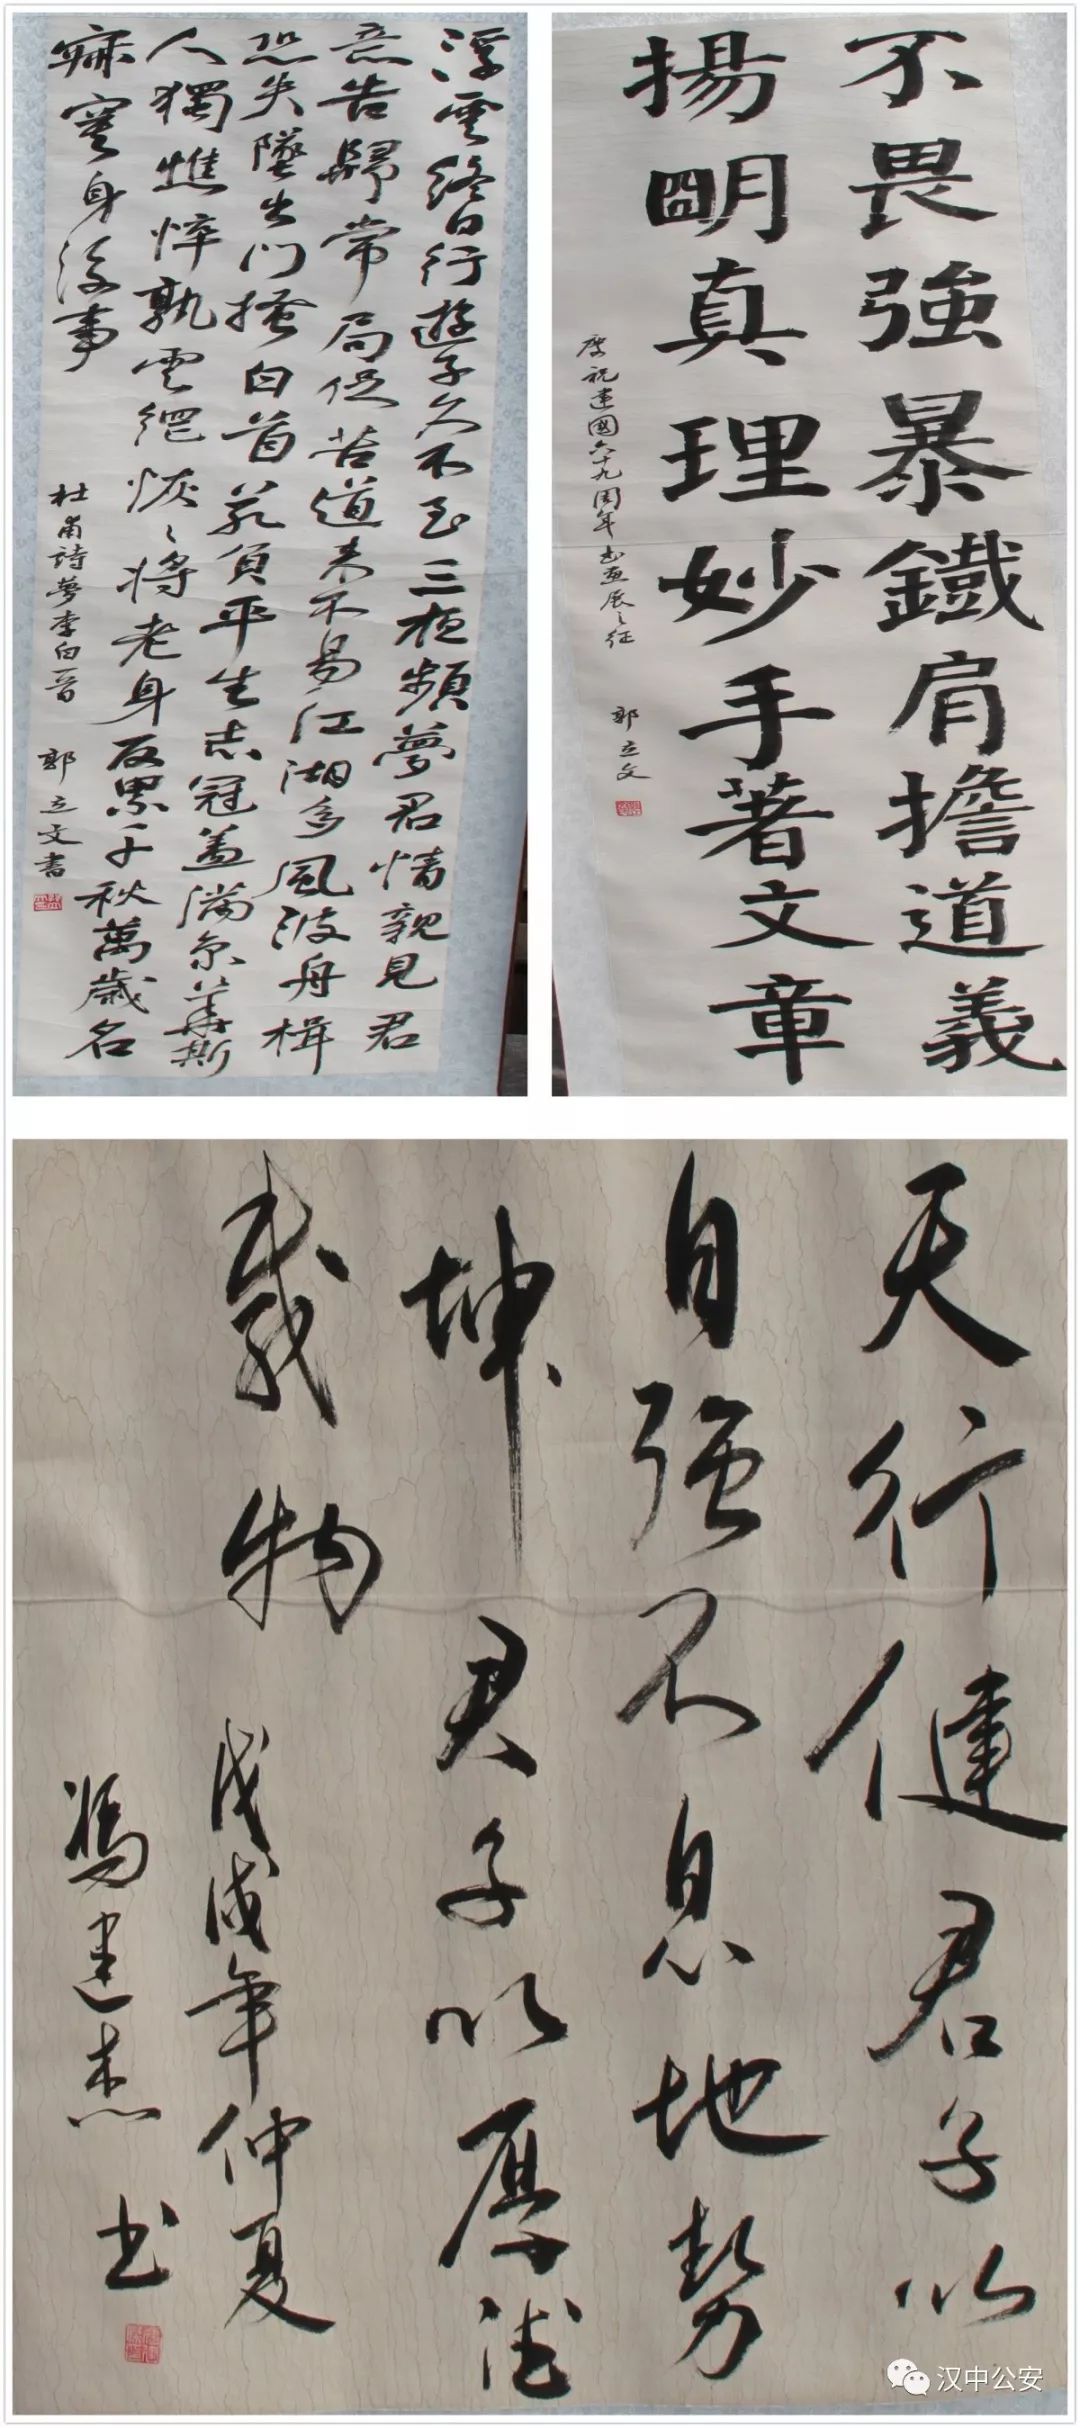 浮雲終日行遊子久不至三夜頻夢君情親見君
意告歸常局促苦道来不易江湖多風波舟楫
恐失墜出门搔白首若負平生志冠盖滿京華斯
人獨憔悴孰雲網恢々將老身反累千秋萬歲名
寂寞身後事
杜甫詩夢李白一首
郭立文書
不畏強暴鐵肩擔道義
揚朙真理妙手著文章
慶祝建國六十九周年书画展之征
郭立文
天行健君子以
自强不息地勢
坤君子以厚德
載物
戊戌年仲夏
馮建杰书
汉中公安